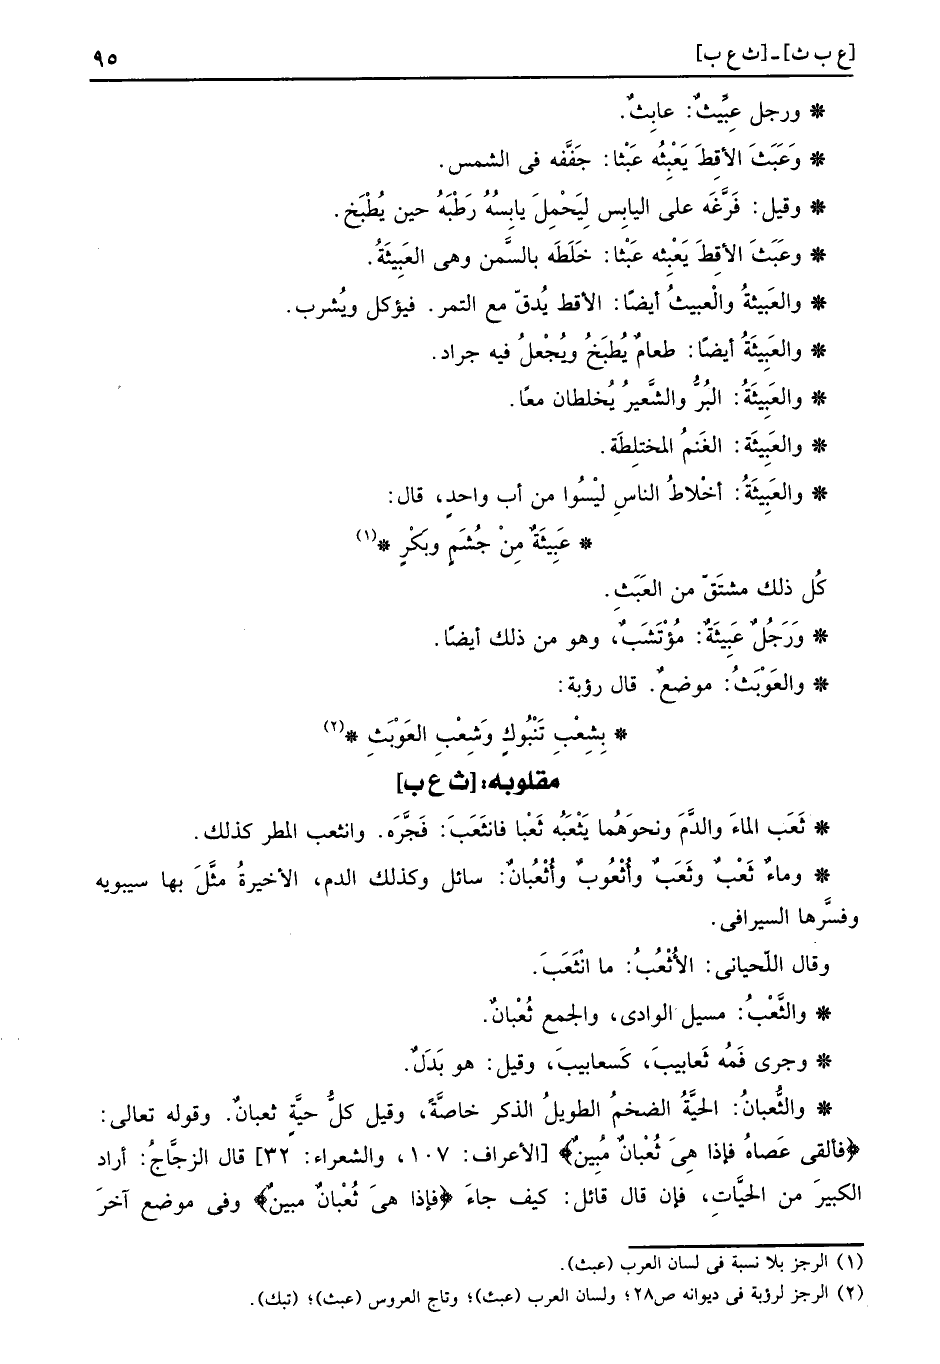 [ع ب ث] ـ [ث ع ب] ٩٥
* ورجل عِبِّيثٌ: عابِثٌ.
* وَعَبَثَ الأقِطَ يَعْبِثُه عَبْثا: جَفَّفه فى الشمس.
* وقيل: فَرَّغَه على اليابس لِيَحْمِلَ يابِسُهُ رَطْبَهُ حين يُطْبَخ.
* وعَبَثَ الأقِطَ يَعْبِثه عَبْثا: خَلَطَه بالسَّمن وهى العَبِيثَةُ.
* والعَبِيثةُ والْعبيثُ أيضًا: الأقط يُدقّ مع التمر. فيؤكل ويُشرب.
* والعَبِيثَةُ أيضًا: طعامٌ يُطبَخُ ويُجْعلُ فيه جراد.
* والعَبِيثَةُ: البُرُّ والشَّعيرُ يُخلطان معًا.
* والعَبِيثَة: الغَنمُ المختلِطَة.
* والعَبِيثَةُ: أخْلاطُ الناسِ لَيْسُوا من أب واحدٍ، قال:
* عَبِيثَةٌ مِنْ جُشَمٍ وبَكْرٍ *(١)
كُل ذلك مشتَقّ من العَبَثِ.
* وَرَجُلٌ عَبِيثَةٌ: مُؤْتَشَبٌ، وهو من ذلك أيضًا.
* والعَوْبَثُ: موضعٌ. قال رؤبة:
* بِشِعْبِ تَنْبُوكٍ وَشِعْبِ العَوْبَثِ *(٢)
مقلوبه: [ث ع ب]
* ثَعَب الماءَ والدَّمَ ونحوَهُما يَثْعَبُه ثَعْبا فانثَعَبَ: فَجَّرَه. وانثعب المطر كذلك.
* وماءٌ ثَعْبٌ وثَعَبٌ وأُثْعُوبٌ وأُثْعُبانٌ: سائل وكذلك الدم، الأخيرةُ مثَّلَ بها سيبويه
وفسَّرها السيرافى.
وقال اللّحيانى: الأُثْعُبُ: ما انْثَعَبَ.
* والثَّعْبُ: مسيل الوادى، والجمع ثُعْبانٌ.
* وجرى فَمُه ثَعابيبَ، كَسعابيبَ، وقيل: هو بَدَلٌ.
* والثُّعبانُ: الحيَّةُ الضخمُ الطويلُ الذكر خاصَّةً، وقيل كلُّ حيَّةٍ ثعبانٌ. وقوله تعالى:
﴿فألقى عَصاهُ فإذا هِىَ ثُعْبانٌ مُبِينٌ﴾ [الأعراف: ١٠٧، والشعراء: ٣٢] قال الزجَّاجُ: أراد
الكبيرَ من الحيَّاتِ، فإن قال قائل: كيف جاءَ ﴿فإذا هىَ ثُعْبانٌ مبينٌ﴾ وفى موضع آخرَ
(١) الرجز بلا نسبة فى لسان العرب (عبث).
(٢) الرجز لرؤبة فى ديوانه ص٢٨؛ ولسان العرب (عبث)؛ وتاج العروس (عبث)؛ (تبك).